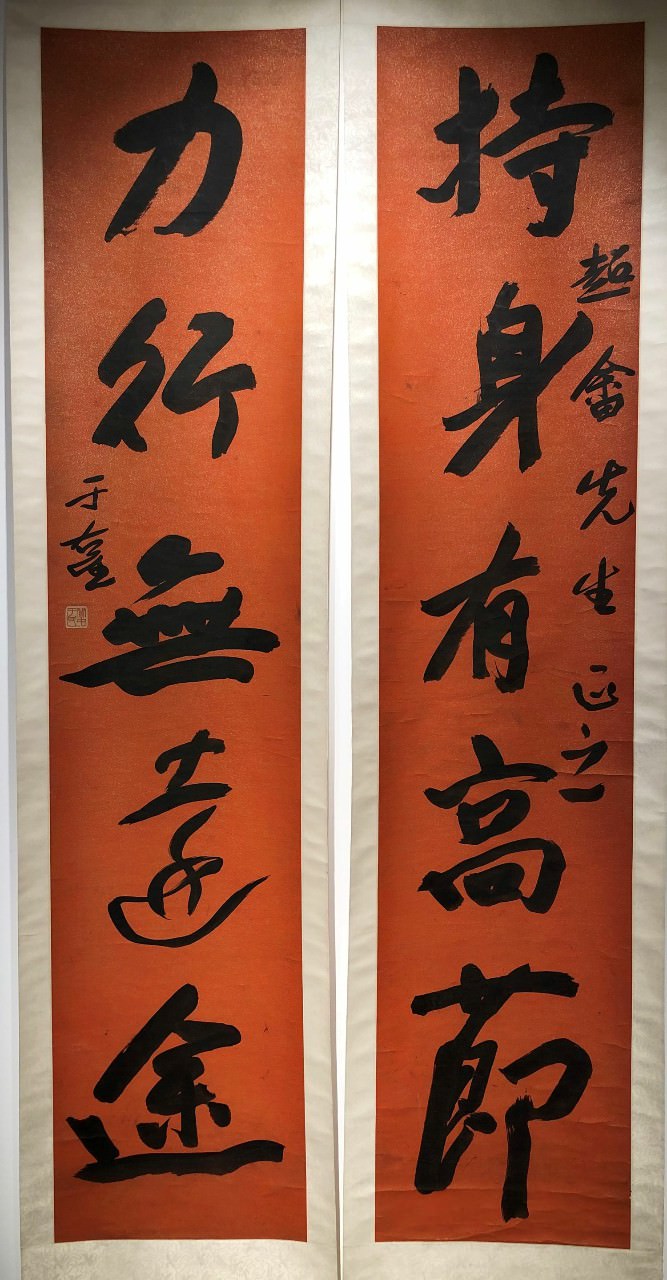 持身有高節
超畬先生正之
力行無遠途
于右任